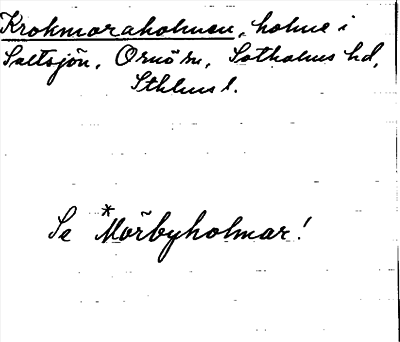 Krokmoraholmen, holme i
Saltsjön, Ornö sn, Sotholms hd,
Sthlms l.
Se *Mörbyholmar!